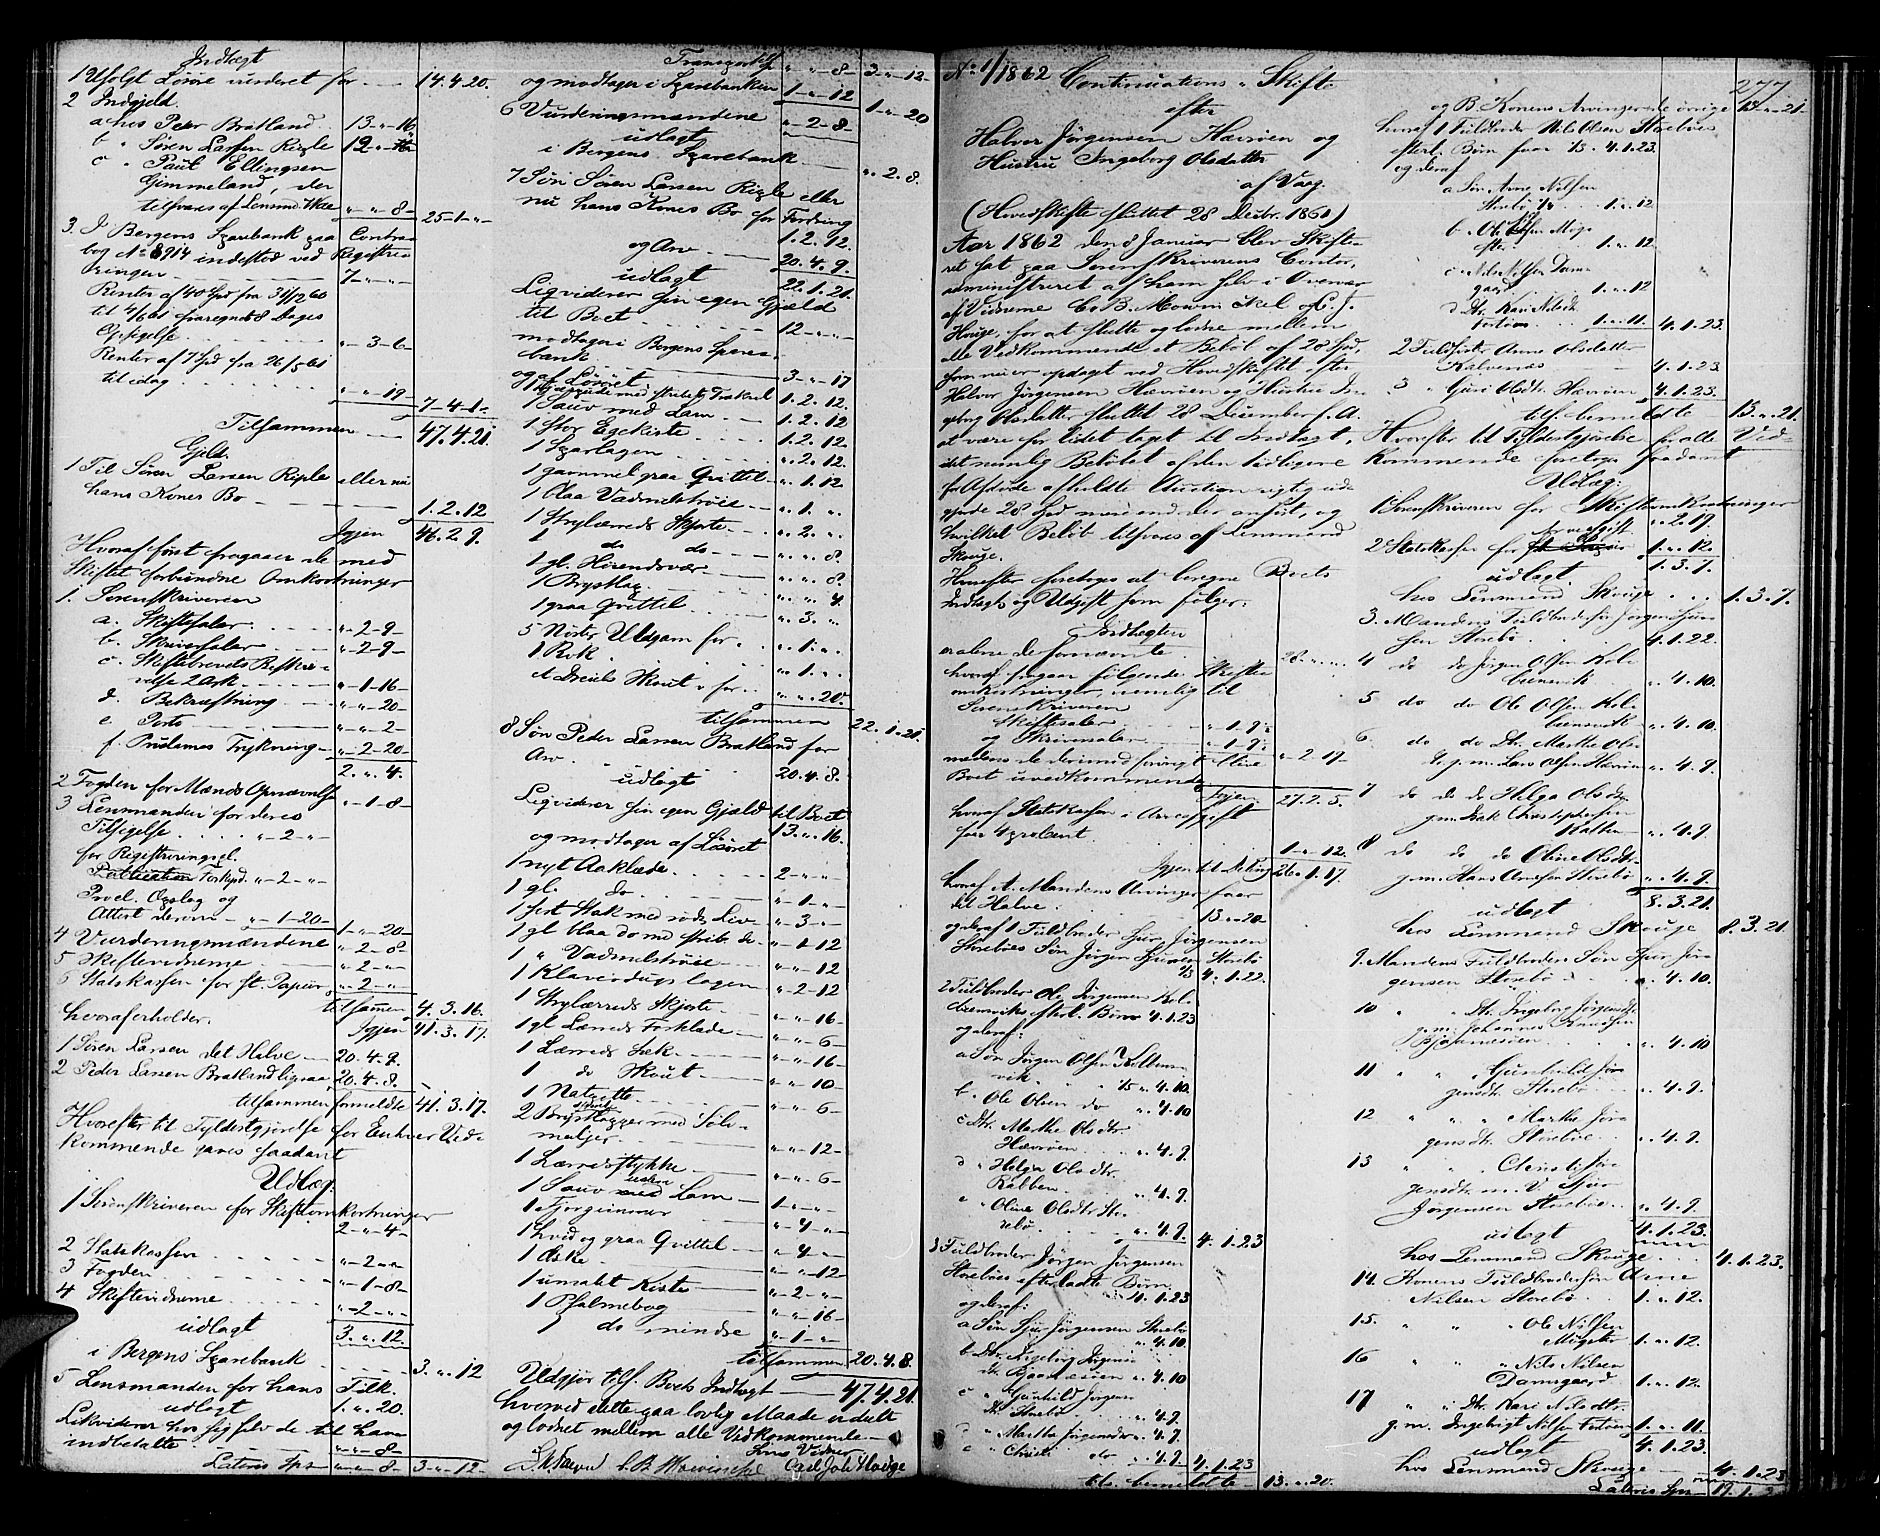 Indtægt
1 Ufolgt Løsøre vurderet for 14.4.20.
2 Indgjeld.
a hos Peder Bratland 13 " 16
b " Søren Larsen Riple 12 "
c " Paul Ellingsen
Gimmeland, der
tilsvares af Lensmd. " " 8 25-1-"
3. I Bergens Sparebank paa Contra
bog No 8914 indestod ved Registre
ringen 7 " "
Renter af 40 Spd fra 31/12 60
til fraregnet 8 Dages
Opsigelse " 3-6
Renter af 7 Spd fra 26/5 61
til idag " " 19 7-4-1
Tilsammen 47.4.21.
Gjeld.
1 Til Søren Larsen Riple eller nu
hans Kones Bo 1.2.12
Igjen 46.2.9.
Hvoraf først fragaaer de med
Skiftet forbundne Omkostninger
1. Sorenskriveren
a. Skiftesaler " 2-9
b. Skriversaler " 2-9
c. Skiftebrevets Beskri-
velse 2 Ark " 1-16
d. Bekræftning " " 20
e Porto " " 2
f. Proclamas Trykning " 2-20
2. " 4.
2 Fogden for Mænds Opnævnelse " 1-8
3 Lensmanden for deres
Tilsigelse " 2 "
for Registreringsf.
Forkynd. " 2 "
Procl. Opslag og
Attest derom " 1-20 1 " 20
4 Vurderingsmændene " 2-8
5 Skiftevidnerne " 2 "
6 Statskassen for st. Papiir " 2 "
tilsammen 4.3.16.
hvoraf erholder. Igjen 41.3.17.
1 Søren Larsen det Halve 20.4.9.
2 Peder Larsen Bratland ligesaa 20.4.8.
tilsammen formeldte 41.3.17.
Hvorefter til Fyldestgjørelse for Enhver Ved-
kommende gaves saadant
Udlæg:
1 Sorenskriveren for Skifteomkostninger
2 " 4
2 Statskassen " 2 "
3 Fogden " 1-8
4 Skiftevidnerne " 2 "
udlagt 3. " 12
i Bergens Sparebank 3. " 12
5 Lensmanden for hans Tilk.
udlagt 1. " 20.
Likviderer hos sig selv de til ham
indbetalte " " 8
Lateris Spd " " 8 3 " 12
Transport " " 8 3 " 12
og modtager i Sparebanken 1 " 12 1 " 20
6 Vurderingsmændene " 2-8
udlagt
i Bergens Sparebank " 2. 8.
7 Søn Søren Larsen Riple eller
nu hans Kones Bo for Fordring
1.2.12.
og Arv 20.4.9.
udlagt 22.1.21.
Liqviderer sin egen Gjæld
til Boet 12 " "
modtager i Bergens Spare-
bank 3 " 17
og af Løsøret
1.2.12.
1 Sauv med Lam 1.2.12
1 Stor Egekiste 1.2.12
1 Sparlagen " 2.12
1 gammel graa Qvittel " 1.12
1 blaa Vadmelstrøie " 1. "
1 Strylærreds Skjorte " 2. "
1 do do " " 8
1 gl. Hørendsvær " " 8.
1 Brystlag " " 4
1 graa Qvittel " 3. "
5 Nøster Uldgarn for " 1. "
1 Rok " 1. "
et Dreiels Skout for " " 20.
tilsammen 22.1.21.
8 Søn Peder Larsen Bratland for
Arv 20.4.8.
udlagt
Liqviderer sin egen Gjæld til Boet
13. " 16.
og modtager af Løsøret
1 nyt Aaklæde 2 " "
1 gl. do " 1 "
1 sort Stak med røds Liv " 3 "
1 gl blaa do med do " 1-12
1 " Vadmelstrøie " " 12
1 Klaverdugs lagen " 2-12
1 Strylærreds Skjorte " " 16
1 gl Lærreds Forklæde " " 6
1 Lærreds Sæk " " 16
1 do Skout " " 10
1 Nathætte " " 6
2 Brystlapper med Sølv-
maljer " " 12
1 Lærredsstykke " " 6
1 Sauv uden Lam 1 " "
1 Fjorgimmer " 4 "
1 hvid og graa Qvittel " 4 "
1 Æske " " 12
1 umalt Kiste " 2 "
1 Psalmebog " " 16
1 do mindre " 1 "
tilsammen 20.4.8.
Udgjør tilf. Boets Indtægt 47.4.21.
hvorved dette paa lovlig Maade uddelt
og lodnet mellem alle Vedkommende
som Vidner
C. B. Mowinckel Carl Joh Houge
No 1/1862 Continuations Skifte 277
efter
Halvor Jørgensen Hævrøen og
Hustru Ingeborg Olsdatter
af Vaag.
(Hovedskifte sluttet 28 Decbr. 1861)
Aar 1862 den 8 Januar blev Skifte-
ret sat paa Sorenskriverens Contor,
administreret af ham selv i Overvær
af Vidnerne C. B. Mowinckel og C. J.
Houge, for at slutte og lodne mellem
alle Vedkommende et Beløb af 28 Spd,
som nu er opdaget ved Hovedskiftet efter
Halvor Jørgensen Hævrøen og Hustru In-
geborg Olsdatter sluttet 28 December f. A.
at være for lidet taget til Indtægt,
idet nemlig Beløbet af den tidligere
holdte Auction rigtig ud
gjorde 28 Spd mere end der anført, og
hvilket Beløb tilsvares af Lensmand
Skouge.
Herefter foretoges at beregne Boets
Indtægt og Udgift som følger:
Indtægten
er alene de fornævnte 28 " "
hvoraf fragaar følgende Skifte-
omkostninger, nemlig til
Sorenskriveren
Skiftesaler " 1.9.
og Skriversaler " 1.9. " 2.19.
medens de derimod øvrigt dette
Boet uvedkommende
Igjen 27.2.5.
hvoraf Statskassen i Arveafgift
faar 4 procent 1 " 12.
Igjen til Deling 26.1.17.
hvoraf A. Mandens Arvinger faar
det Halve 13 " 20
og deraf 1 Fuldbroder Sjur Jørgensen
Storebøes Søn Jørgen Sjursen Storebø
1/3 4.1.22.
2 Fuldbroder Ole Jørgensen Kol-
beensviks efterl. Børn 4.1.23
og deraf:
a Søn Jørgen Olsen Kolbeens-
vik 1/5 " 4.10.
b. " Ole Olsen do " 4.10
c Dtr. Marthe Olsdtr.
Hævrøen " 4.9.
d " Helga Olsdtr.
Kalven " 4.9.
e " Oline Olsdtr Sto-
rebø " 4.9. 4.1.23
3 Fuldbroder Jørgen Jørgensen
Storebøes efterladte Børn
4.1.23
og deraf:
a Søn Sjur Jørgensen Storebø
" 4.10
b Dtr. Ingeborg Jørgens-
dtr. Bjaanesøen " 4.10
c " Gunhild Jørgens
dtr. Storebø " 4.9.
d " Martha Jørgensdtr " 4.9.
e " Christi do " 4.9. 4.1.23
tils. bemeldte 13. " 20.
og B. Konens Arvinger de øvrige 13. " 21.
hvoraf 1 Fuldbroder Nils Olsen Storebøes
efterl. Børn faar 1/3 4.1.23.
og deraf
a Søn Arne Nilsen
Storebø 1/4 1. " 12
b. " Ole Nilsen Møg-
ster 1. " 12
c " Nils Nilsen Dams-
gaard 1. " 12
d Dtr. Kari Nilsdtr
1. " 11. 4.1.23.
2 Fuldsøster Anne Olsdatter
Kalvenes 4.1.23
3 " Guri Olsdtr. Hævrøen 4.1.23.
tils. bemeldte 13. " 21.
Hvorefter til Fyldestgjørelse for alle Ved-
kommende foretoges saadant
Udlæg:
1 Sorenskriveren for Skifteomkostninger
" 2.19.
2 Statskassen for Arveafgift 1. " 12
udlagt 1.3.7.
hos Lensmand Skouge 1.3.7.
3. Mandens Fuldbrodersøn Jørgen Sjur-
sen Storebø 4.1.22.
4 do do Jørgen Olsen Kol-
beensvik " 4.10.
5 do do Ole Olsen Kol-
beensvik " 4.10.
6. do do Dtr. Marthe Ols-
dtr. g.m. Lars Olsen Hævrøen " 4.9.
7 do do do Helga Olsdtr.
g.m. Isak Christophersen
Kalven " 4.9.
8 do do do Oline Olsdtr.
g.m. Hans Arnesen Storebø " 4.9.
udlagt 8.3.21.
hos Lensmand Skouge 8.3.21
9. Mandens Fuldbroders Søn Sjur Jør-
gensen Storebø " 4.10.
10 " " Dtr. Ingeborg Jørgensdtr.
g.m. Johannes Knudsen
Bjaanesøen " 4.10
11 " " " Gunhild Jør-
gensdtr. Storebø " 4.9.
12 " " " Marthe Jør-
gensdtr. Storebø " 4.9.
13 " " " Christi Jør-
gensdtr. u. V. Sjur
Jørgensen Storebø " 4.9.
udlagt 4.1.23.
hos Lensmand Skouge 4.1.23.
14. Konens Fuldbrodersøn Arne
Nilsen Storebø 1. " 12.
15. " " Ole Nilsen
Møgster 1. " 12.
16 " " " Nils Nilsen
Damsgaard 1. " 12.
17 " " Dtr. Kari Nilsdtr.
g.m. Ingebrigt Nilsen 1. " 11.
udlagt 4.1.23.
hos Lensmand Skouge 4.1.23
Lateris Spd 19.1.2